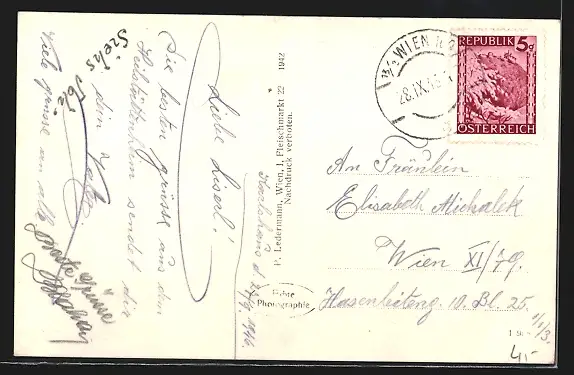 Liebe Liserl!
Die besten grüsse aus dem
sendet dir
dein Vater
Viele grüsse an alle
grüsse
d. 25/9 1946.
P. Ledermann, Wien, I, Fleischmarkt 22 1942
Nachdruck verboten.
Echte
Photographie
WIEN
28.IX.
REPUBLIK 5g
ÖSTERREICH
An Fräulein
Elisabeth Michalek
Wien XI/79.
Hasenleiteng. 10. Bl. 25.
4,-